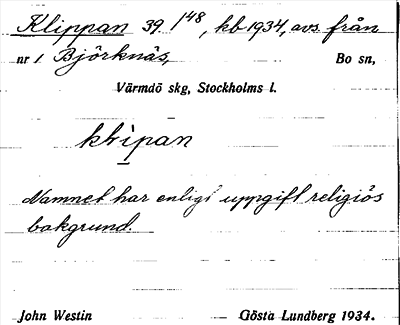 Klippan 39 /148, kb 1934, avs. från
nr 1 Björknäs, Bo sn,
Värmdö skg, Stockholms l.
Namnet har enligt uppgift religiös
bakgrund.
John Westin Gösta Lundberg 1934.